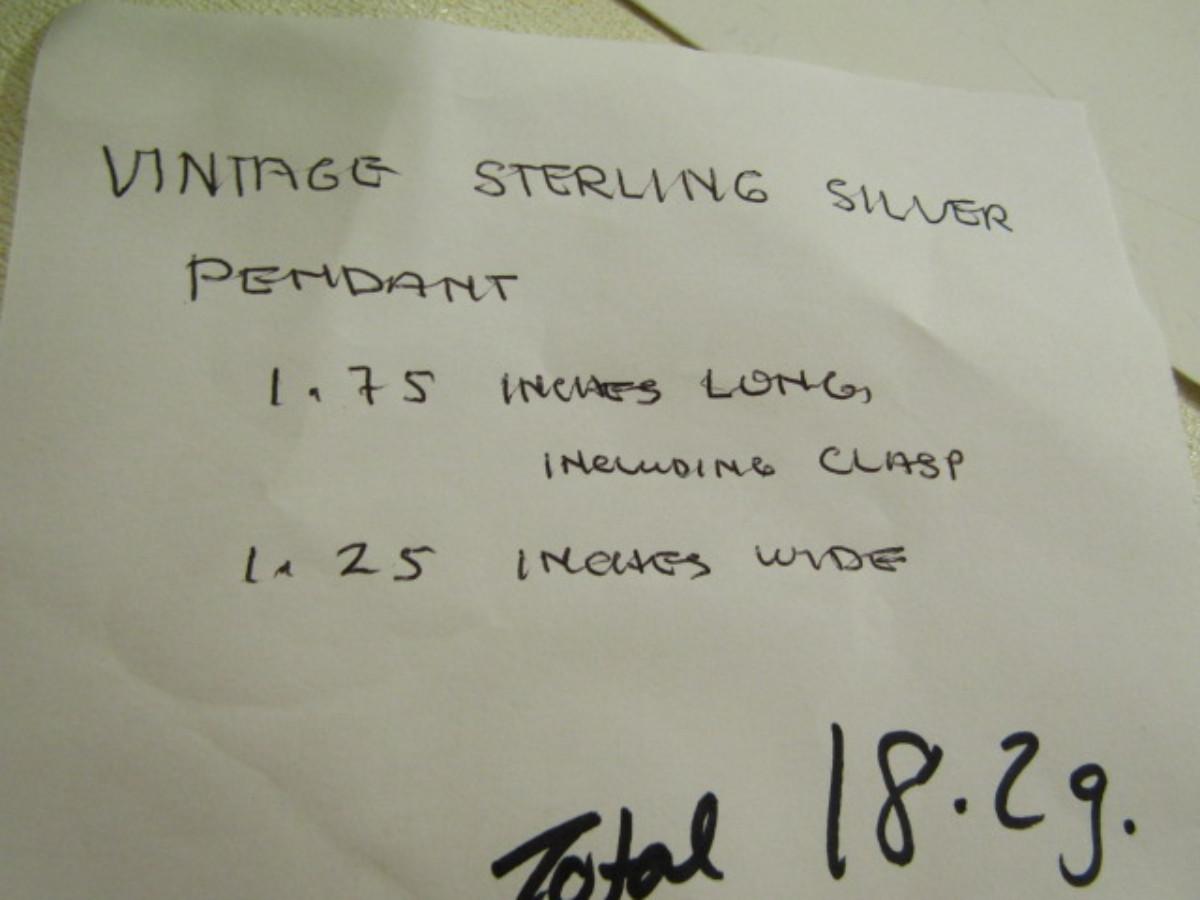 VINTAGE STERLING SILVER
PENDANT
1.75 INCHES LONG,
INCLUDING CLASP
1.25 INCHES WIDE
Total 18.2g.